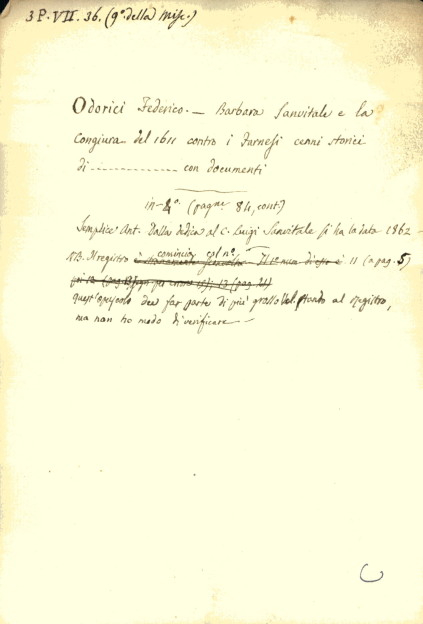 3 P. VII. 36. (9º. della Misc.)
Odorici Federico. — Barbara Sanvitale e la
Congiura del 1611 contro i Farnesi cenni storici
di ------------ con documenti
in-4º. (pagne. 84, cont.)
Semplice Ant. Dalla dedica al C. Luigi Sanvitale si ha la data 1862 -
NB. Il registro comincia col nº. 11 (a pag. 5)
quest'opuscolo dee far parte di più grosso Vol. stando al registro,
ma non ho modo di verificare —